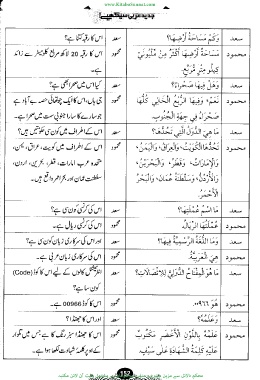 www.KitaboSunnat.com
جدید عربی سیکھیے
سعد وَكَمْ مَسَاحَةُ أَرْضِهَا؟ سعد اس کا رقبہ کتنا ہے؟
محمود مَسَاحَةُ أَرْضِهَا أَكْثَرُ مِنْ مِلْيُونَيْ محمود اس کا رقبہ 20 لاکھ مربع کلومیٹر سے زائد
كِيلُو مِتْرٍ مُرَبَّعٍ. ہے۔
سعد وَهَلْ فِيهَا صَحْرَاءُ؟ سعد کیا اس میں صحرا بھی ہے؟
محمود نَعَمْ، وَفِيهَا الرُّبْعُ الْخَالِي كُلُّهَا محمود جی ہاں، اس کا ایک چوتھائی حصہ بے آباد ہے
صَحْرَاءُ فِي جِهَةِ الْجَنُوبِ. جو سارے کا سارا جنوبی سمت میں صحرا ہے۔
سعد مَا هِيَ الدُّوَلُ الَّتِي تَحُدُّهَا؟ سعد اس کے اطراف میں کون سی حکومتیں ہیں؟
محمود تَحُدُّهَا الْكُوَيْتُ، وَالْعِرَاقُ، وَالْيَمَنُ، محمود اس کے اطراف میں کویت، عراق، یمن،
وَالْإِمَارَاتُ، وَقَطَرُ، وَالْبَحْرَيْنُ، متحدہ عرب امارات، قطر، بحرین، اردن،
وَالْأُرْدُنُّ، وَسَلْطَنَةُ عُمَانَ، وَالْبَحْرُ سلطنت عمان اور بحر احمر واقع ہیں۔
الْأَحْمَرُ.
سعد مَا اسْمُ عُمْلَتِهَا؟ سعد اس کی کرنسی کون سی ہے؟
محمود عُمْلَتُهَا الرِّيَالُ. محمود اس کی کرنسی ریال ہے۔
سعد وَمَا اللُّغَةُ الرَّسْمِيَّةُ فِيهَا؟ سعد اور اس کی سرکاری زبان کون سی ہے؟
محمود هِيَ عَرَبِيَّةٌ. محمود اس کی سرکاری زبان عربی ہے۔
سعد مَا هُوَ الْمِفْتَاحُ الدَّوْلِيُّ لِلْاِتِّصَالَاتِ؟ سعد انٹرنیشنل کالوں کے لیے اس کا کوڈ (Code)
کون سا ہے؟
محمود هُوَ ٠٠٩٦٦. محمود اس کا کوڈ 00966 ہے۔
سعد وَعَلَمُهَا؟ سعد اور اس کا جھنڈا؟
محمود عَلَمُهُ بِاللَّوْنِ الْأَخْضَرِ مَكْتُوبٌ محمود اس کا جھنڈا سبز رنگ کا ہے جس میں تلوار
عَلَيْهِ كَلِمَةُ الشَّهَادَةِ عَلَى سَيْفٍ. کے اوپر کلمہ شہادت لکھا ہوا ہے۔
152